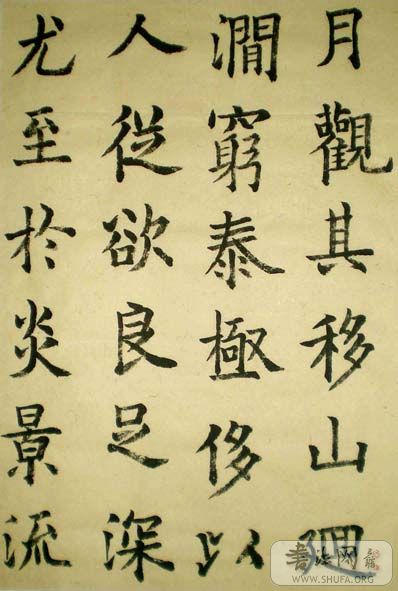 月觀其移山迴
澗窮泰極侈以
人從欲良足深
尤至於炎景流
書法网
WWW.SHUFA.ORG